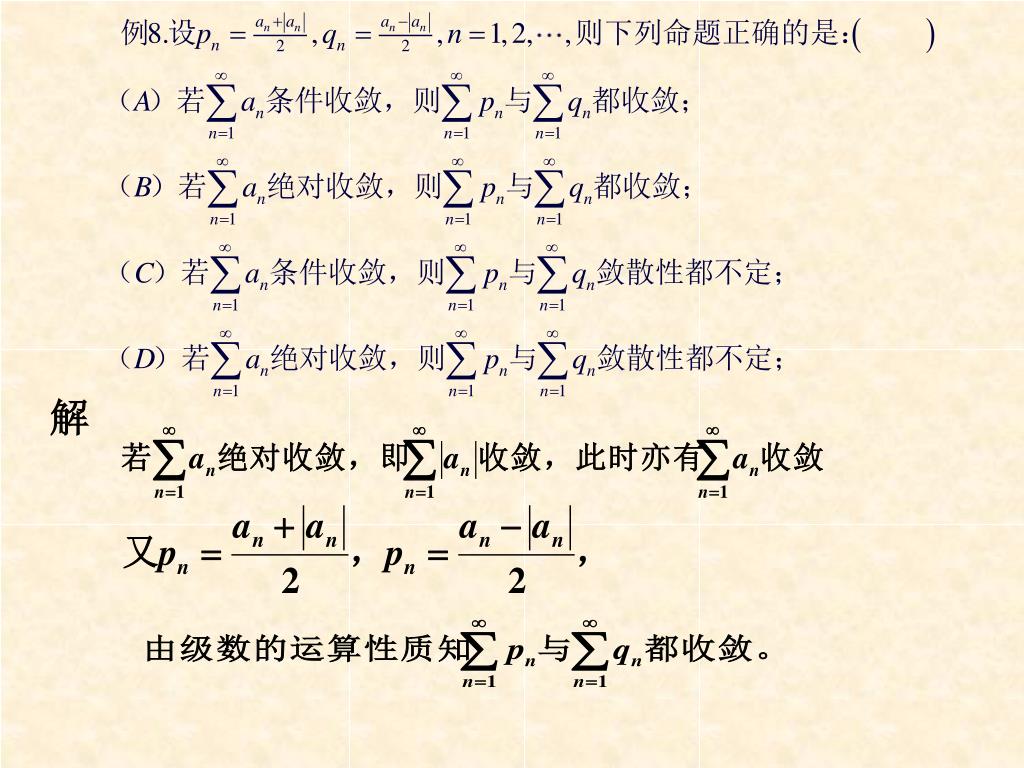 例8.设pₙ = (aₙ+|aₙ|)/2, qₙ = (aₙ−|aₙ|)/2, n = 1, 2, ⋯, ,则下列命题正确的是:(  )
（A）若∑_{n=1}^{∞} aₙ条件收敛，则∑_{n=1}^{∞} pₙ与∑_{n=1}^{∞} qₙ都收敛；
（B）若∑_{n=1}^{∞} aₙ绝对收敛，则∑_{n=1}^{∞} pₙ与∑_{n=1}^{∞} qₙ都收敛；
（C）若∑_{n=1}^{∞} aₙ条件收敛，则∑_{n=1}^{∞} pₙ与∑_{n=1}^{∞} qₙ敛散性都不定；
（D）若∑_{n=1}^{∞} aₙ绝对收敛，则∑_{n=1}^{∞} pₙ与∑_{n=1}^{∞} qₙ敛散性都不定；
解
若∑_{n=1}^{∞} aₙ绝对收敛，即∑_{n=1}^{∞} |aₙ|收敛，此时亦有∑_{n=1}^{∞} aₙ收敛
又pₙ = (aₙ + |aₙ|)/2， pₙ = (aₙ − |aₙ|)/2，
由级数的运算性质知∑_{n=1}^{∞} pₙ与∑_{n=1}^{∞} qₙ都收敛。